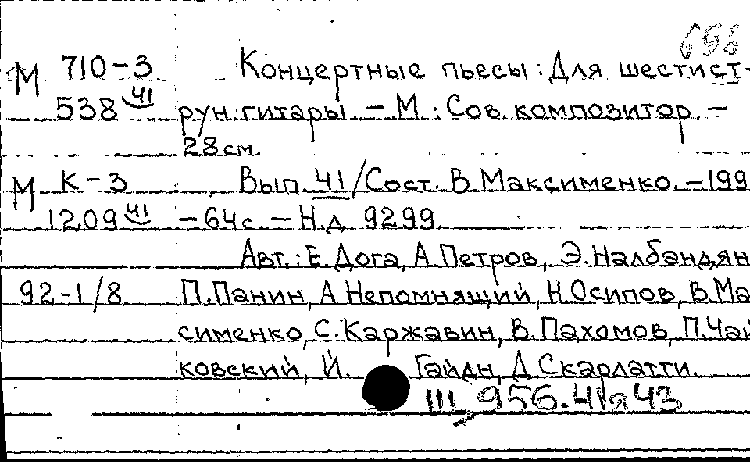 656
М 710-3 Концертные пьесы: Для шестист-
538 41 рун. гитары. - М.: Сов. композитор. -
28 см.
М К-3 Вып. 41 / Сост. В. Максименко. - 199
1209 41 - 64 с. - Н.д. 9299.
Авт.: Е. Дога, А. Петров, Э. Налбандян
92-1/8 П. Панин, А. Непомнящий, Н. Осипов, В. Ма
сименко, С. Каржавин, В. Пахомов, П. Чай
ковский, Й. Гайдн, Д. Скарлатти.
III 956.41я43